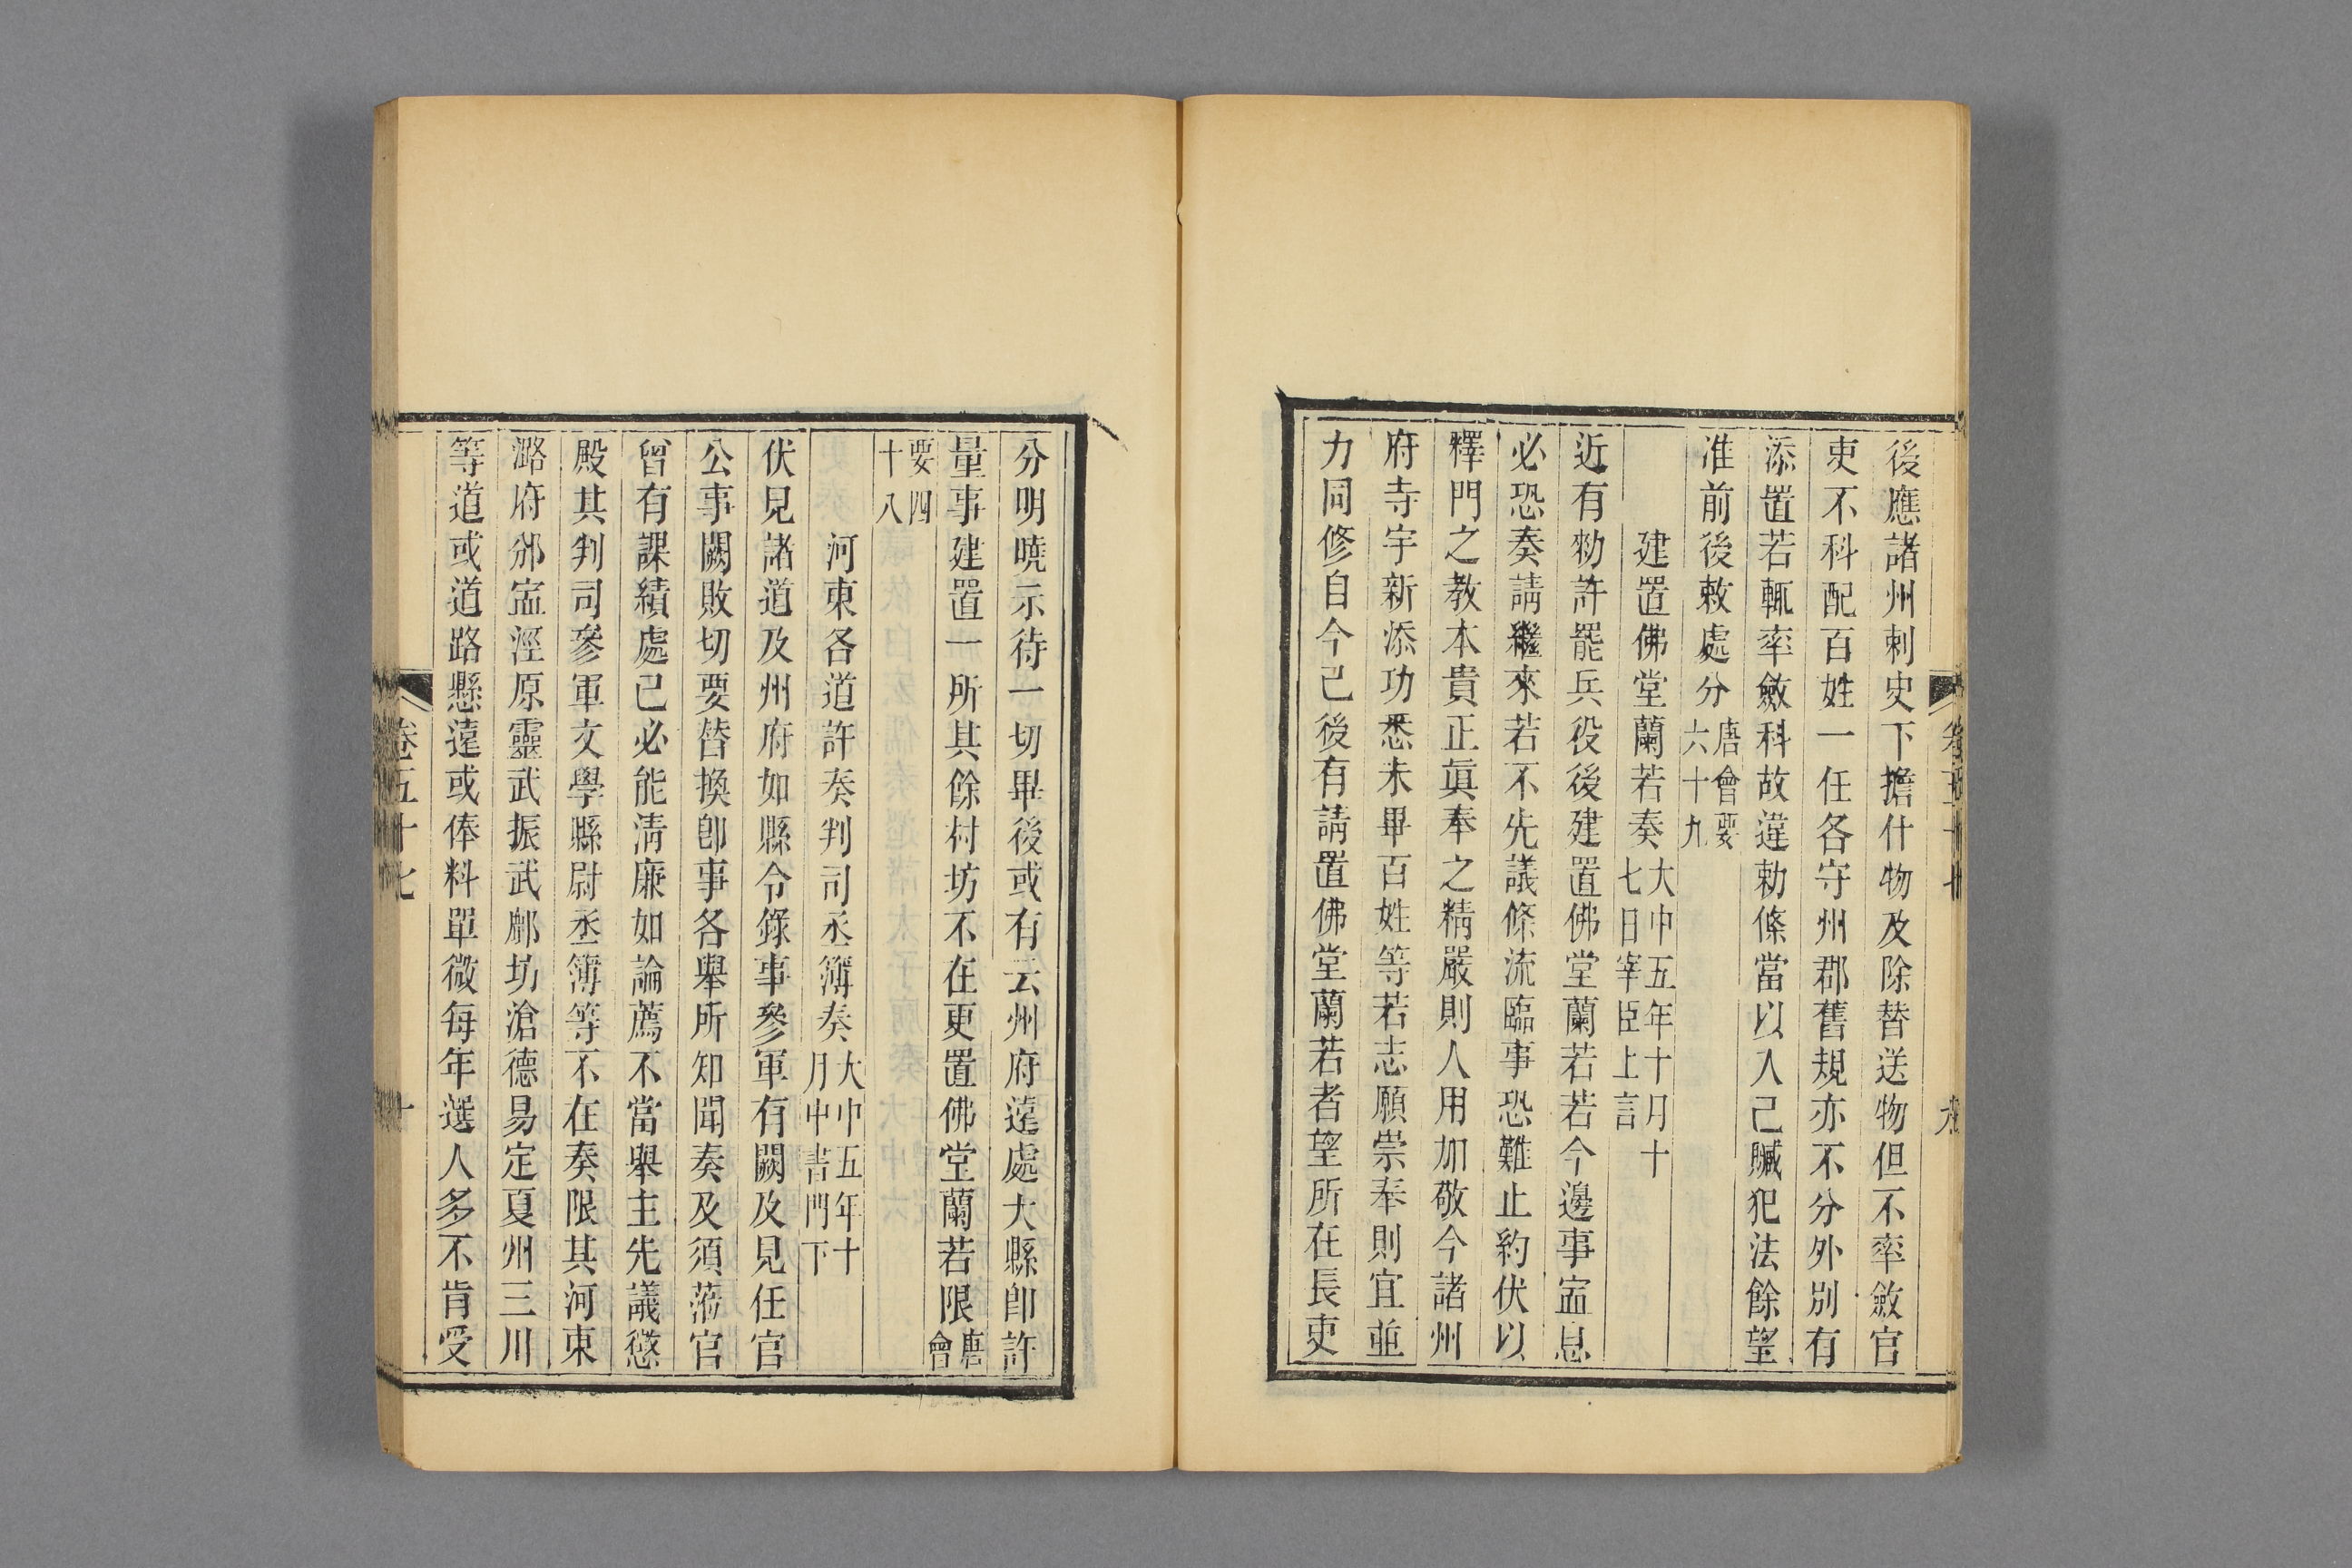 後應諸州刺史下擔什物及除替送物但不率斂官
吏不科配百姓一任各守州郡舊規亦不分外別有
添置若輒率斂科故違勅條當以入己贓犯法餘望
准前後敕處分唐會要六十九
建置佛堂蘭若奏大中五年十月十七日宰臣上言
近有勑許罷兵役後建置佛堂蘭若若今邊事寍息
必恐奏請繼來若不先議條流臨事恐難止約伏以
釋門之教本貴正眞奉之精嚴則人用加敬今諸州
府寺宇新添功悉未畢百姓等若志願崇奉則宜並
力同修自今己後有請置佛堂蘭若者望所在長吏
分明曉示待一切畢後或有云州府遠處大縣卽許
量事建置一所其餘村坊不在更置佛堂蘭若限唐會
要四十八
河東各道許奏判司丞簿奏大中五年十月中書門下
伏見諸道及州府如縣令錄事參軍有闕及見任官
公事闕敗切要替換卽事各舉所知聞奏及須蒞官
曾有課績處己必能清廉如論薦不當舉主先議懲
殿其判司參軍文學縣尉丞簿等不在奏限其河東
潞府邠寍涇原靈武振武鄜坊滄德易定夏州三川
等道或道路懸遠或俸料單微每年選人多不肯受
卷五十七
十